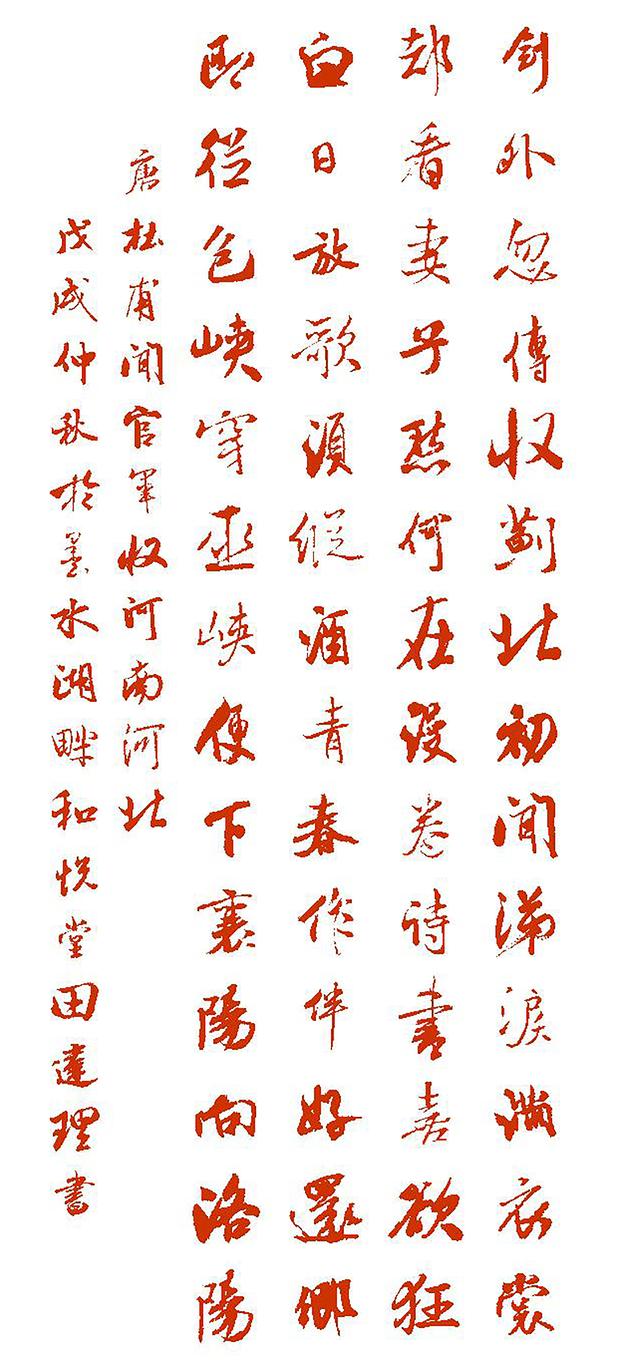 劍外忽傳收薊北初聞涕淚滿衣裳
却看妻子愁何在漫卷詩書喜欲狂
白日放歌須縱酒青春作伴好還鄉
即從巴峽穿巫峽便下襄陽向洛陽
唐杜甫聞官軍收河南河北
戊戌仲秋於墨水湖畔和悦堂田達理書